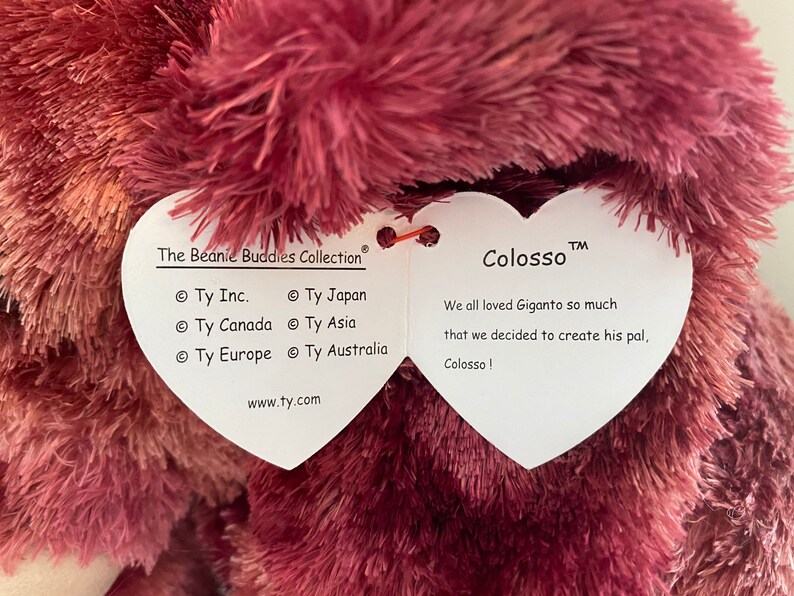 The Beanie Buddies Collection®
© Ty Inc. © Ty Japan
© Ty Canada © Ty Asia
© Ty Europe © Ty Australia
www.ty.com
Colosso™
We all loved Giganto so much
that we decided to create his pal,
Colosso !